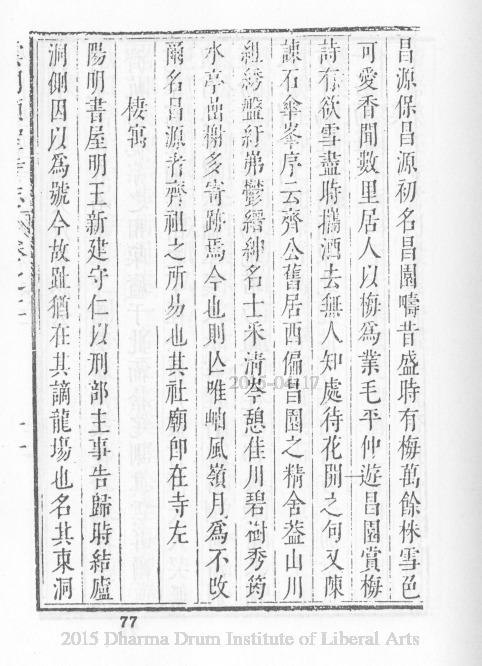 昌源保昌源初名昌園疇昔盛時有梅萬餘株雪色
可愛香聞數里居人以梅爲業毛平仲遊昌園賞梅
詩有欲雪盡時攜酒去無人知處待花開之句又陳
諫石傘峯序云齊公舊居西偏昌園之精舍葢山川
組綉盤紆岪鬱縉紳名士采清岑憩佳川碧樹秀筠
水亭喦榭多寄跡焉今也則亾唯岫風嶺月爲不改
爾名昌源者齊祖之所易也其社廟卽在寺左
棲寓
陽明書屋明王新建守仁以刑部主事告歸時結廬
洞側因以爲號今故趾猶在其謫龍塲也名其東洞
77
2015-04-17
2015 Dharma Drum Institute of Liberal Arts